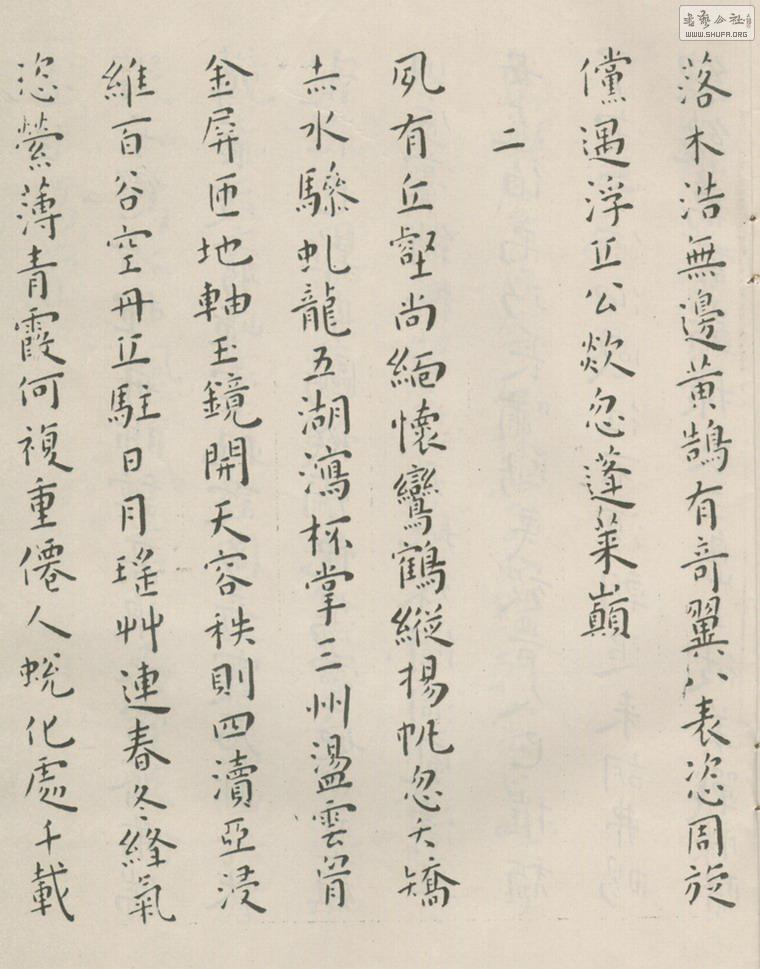 落木浩無邊黃鵠有奇翼八表恣周旋
儻遇浮丘公欻忽蓬萊巔
二
夙有丘壑尚緬懷鸞鶴縱揚帆忽夭矯
赤水驂虬龍五湖瀉杯掌三州盪雲胷
金屏匝地軸玉鏡開天容秩則四瀆亞浸
維百谷空丹丘駐日月瑤艸連春冬絳氣
恣縈薄青霞何複重僊人蛻化處千載
書藝公社
WWW.SHUFA.ORG